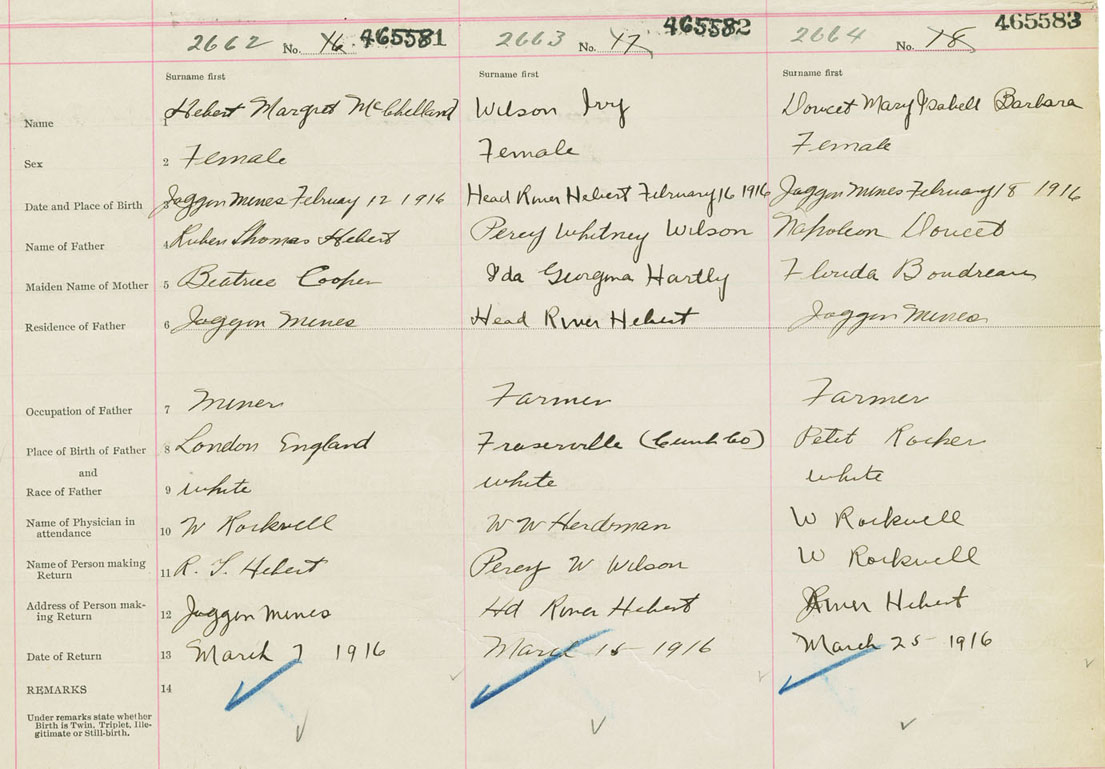 2662 No. 76 465581 2663 No. 77 465582 2664 No. 78 465583
Surname first Surname first Surname first
Name 1 Hebert Margret McChelland Wilson Ivy Doucet Mary Isabell Barbara
Sex 2 Female Female Female
Date and Place of Birth 3 Joggin Mines February 12 1916 Head River Hebert February 16 1916 Joggin Mines February 18 1916
Name of Father 4 Ruben Thomas Hebert Percy Whitney Wilson Napoleon Doucet
Maiden Name of Mother 5 Beatrice Cooper Ida Georgina Hartly Florida Boudreau
Residence of Father 6 Joggin Mines Head River Hebert Joggin Mines
Occupation of Father 7 Miner Farmer Farmer
Place of Birth of Father 8 London England Fraserville (Cumb Co) Petit Rocher
and
Race of Father 9 white white white
Name of Physician in
attendance 10 W Rockwell W W Herdman W Rockwell
Name of Person making
Return 11 R. T. Hebert Percy W Wilson W Rockwell
Address of Person mak-
ing Return 12 Joggin Mines Hd River Hebert River Hebert
Date of Return 13 March 7 1916 March 15 1916 March 25 1916
REMARKS 14
Under remarks state whether
Birth is Twin, Triplet, Ille-
gitimate or Still-birth.